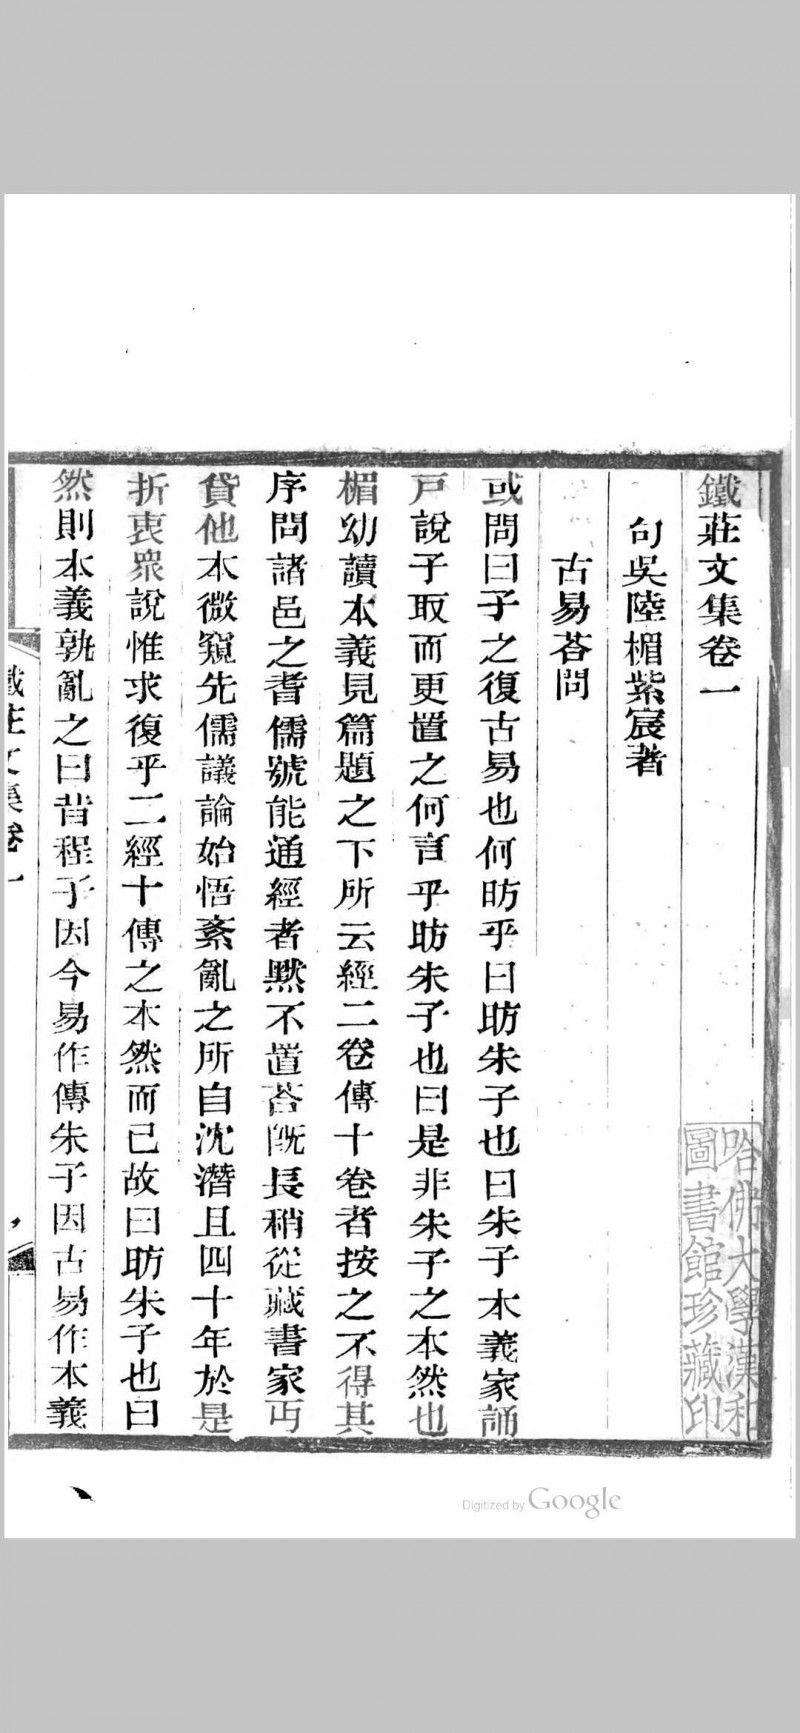 鐵莊文集卷一
句吳陸楣紫宸著
古易荅問
或問曰子之復古易也何昉乎曰昉朱子也曰朱子本義家誦
戸說子取而更置之何言乎昉朱子也曰是非朱子之本然也
楣幼讀本義見篇題之下所云經二卷傳十卷者按之不得其
序問諸邑之耆儒號能通經者黙不置荅旣長稍從藏書家丐
貸他本微窺先儒議論始悟紊亂之所自沈潛且四十年於是
折衷衆說惟求復乎二經十傳之本然而已故曰昉朱子也曰
然則本義孰亂之曰昔程子因今易作傳朱子因古易作本義
鐵莊文集卷一
哈佛大學漢和
圖書館珍藏印
Digitized by Google